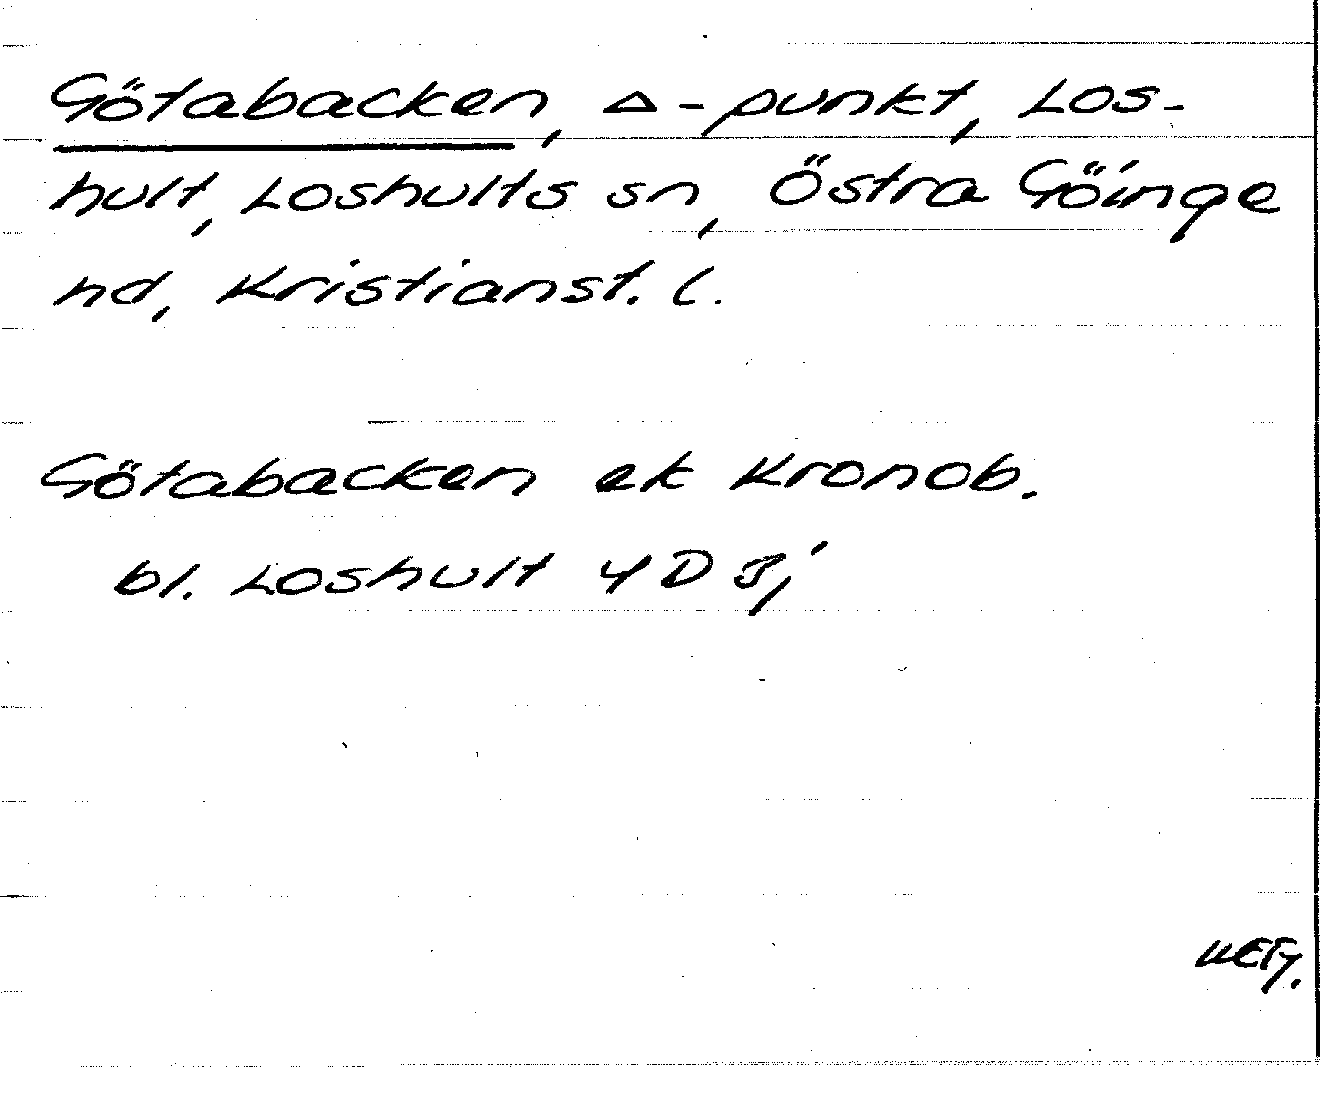 Götabacken, △-punkt, Los-
hult, Loshults sn, Östra Göinge
hd, Kristianst. l.
Götabacken ek Kronob.
bl. Loshult 4D